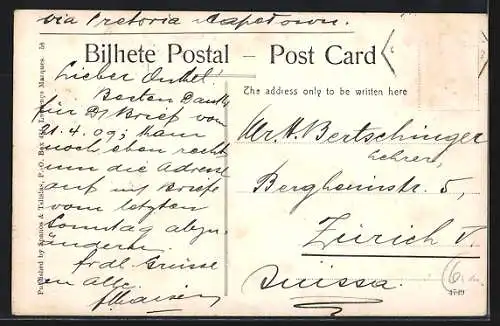 via Pretoria Capetown.
Bilhete Postal – Post Card
The address only to be written here
Lieber Onkel!
Besten Dank
für Brief vom
21.4.09; kam
noch eben recht
um die Adresse
auf Briefe
vom letzten
Sonntag abzu-
ändern.
frdl. Grüsse
an Alle.
Mr. H. Bertschinger
Lehrer,
Bergheimstr. 5,
Zürich V.
Suissa.
Published by Spanos & Tsitsias, P. O. Box 434, Lourenço Marques. 58
4749